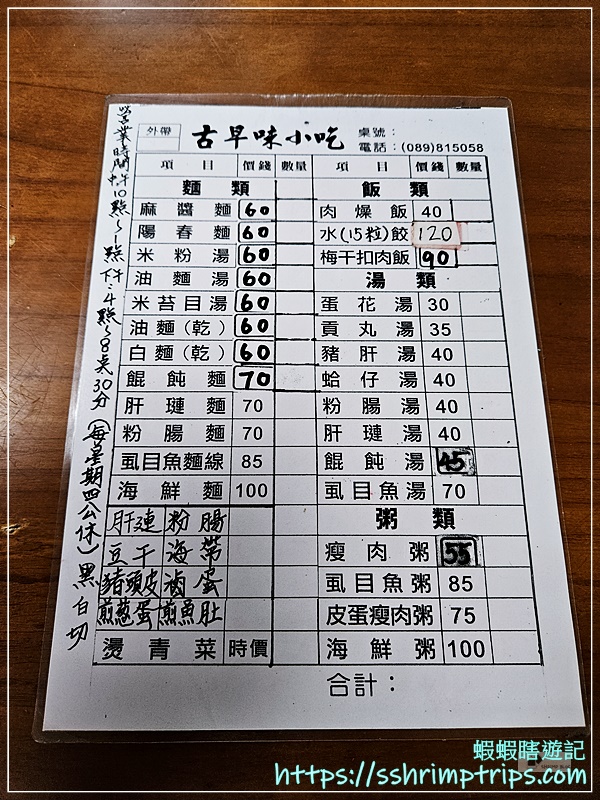 外帶 古早味小吃 桌號：
電話：(089)815058
項目 價錢 數量 項目 價錢 數量
麵類 飯類
麻醬麵 60 肉燥飯 40
陽春麵 60 水(15粒)餃 120
米粉湯 60 梅干扣肉飯 90
油麵湯 60 湯類
米苔目湯 60 蛋花湯 30
油麵(乾) 60 貢丸湯 35
白麵(乾) 60 豬肝湯 40
餛飩麵 70 蛤仔湯 40
肝璉麵 70 粉腸湯 40
粉腸麵 70 肝璉湯 40
虱目魚麵線 85 餛飩湯 45
海鮮麵 100 虱目魚湯 70
肝連 粉腸 粥類
豆干 海帶 瘦肉粥 55
豬頭皮 滷蛋 虱目魚粥 85
煎蔥蛋 煎魚肚 皮蛋瘦肉粥 75
燙青菜 時價 海鮮粥 100
合計：
營業時間 10點~1點 4點~8點30分(每星期四公休)
黑白切
蝦蝦瞎遊記
https://sshrimptrips.com/